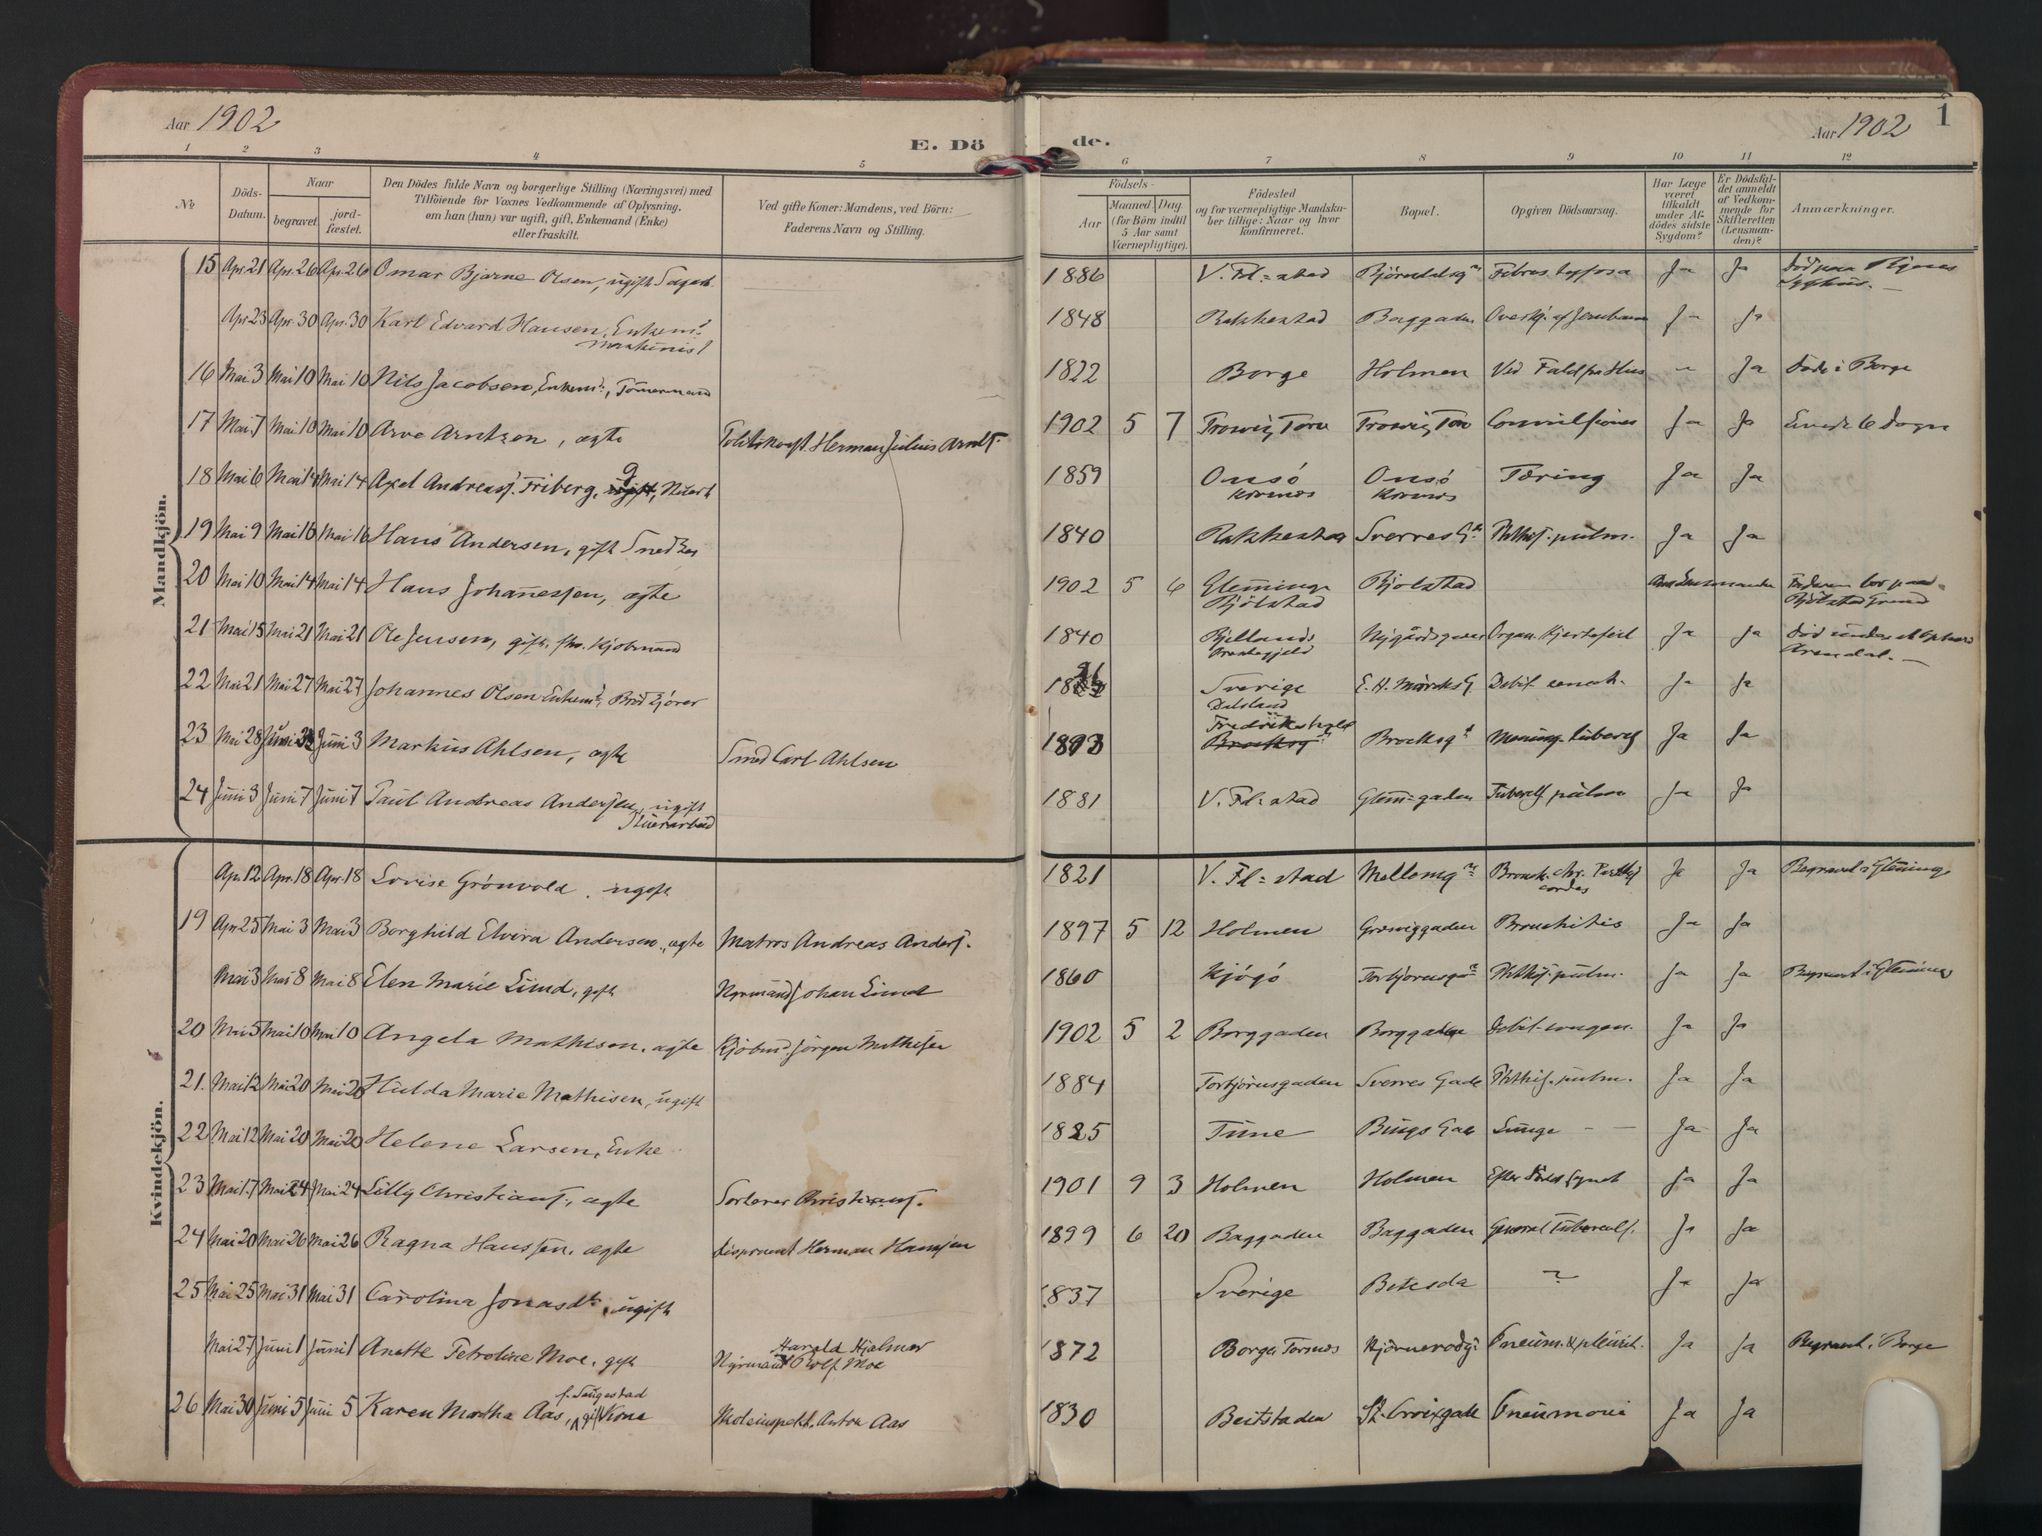 Aar 1902
E. Dö
de.
Aar 1902
1
1 2 3 4 5 6 7 8 9 10 11 12
No
Döds-Datum.
Naar
begravet.
jord-fæstet.
Den Dödes fulde Navn og borgerlige Stilling (Næringsvei) med
Tilföiende for Voxnes Vedkommende af Oplysning,
om han (hun) var ugift, gift, Enkemand (Enke)
eller fraskilt.
Ved gifte Koner: Mandens, ved Börn:
Faderens Navn og Stilling.
Födsels-
Aar
Maaned. Dag.
(for Börn indtil
5 Aar samt
Værnepligtige).
Födested
og for værnepligtige Mandska-
ber tillige: Naar og hvor
konfirmeret.
Bopæl.
Opgiven Dödsaarsag.
Har Læge
været
tilkaldt
under Af-
dödes sidste
Sygdom?
Er Dödsfal-
det anmeldt
af Vedkom-
mende for
Skifteretten
(Lensman-
den)?
Anmærkninger.
Mandkjön.
15 Apr. 21 Apr. 26 Apr. 26 Omar Bjarne Olsen, ugift 1886 V. Fl=stad Febris typhosa Ja Ja
Apr 23 Apr. 30 Apr. 30 Karl Edvard Hansen, Enkem. 1848 Rakkestad Baggaden Ja Ja
Maskinist
16 Mai 3 Mai 10 Mai 10 Nils Jacobsen, Enkem., Tömermand 1822 Borge Holmen Ved Fald paa Hus " Ja Döde i Borge
17 Mai 7 Mai 10 Mai 10 Arve Arntzen, ægte Herman Julius Arntz. 1902 5 7 Trosvig Torv Trosvig Torv Convulsioner Ja Ja Levede 6 Dogn
18 Mai 6 Mai 14 Mai 14 Axel Andreas. Friberg, gift, 1859 Onsö Onsö Tæring Ja Ja
19 Mai 9 Mai 16 Mai 16 Hans Andersen, gift Snedker 1840 Rakkestad Sverres G. Phthis. pulm. Ja Ja
20 Mai 10 Mai 14 Mai 14 Hans Johanessen, ægte 1902 5 6 Glemminge Bjölstad
Bjölstad
21 Mai 15 Mai 21 Mai 21 Ole Jensen, gift, Kjöbmand 1840 Organ. Hjertefeil Ja Ja
Arendal.
22 Mai 21 Mai 27 Mai 27 Johannes Olsen Enkem., Bröd kjörer Sverige Ja Ja
Dalsland
23 Mai 28 Juni 3 Markus Ahlsen, ægte Smed Carl Ahlsen 1893 Fredrikshald Brocksg. Mening. tubercl Ja Ja
24 Juni 3 Juni 7 Juni 7 Paul Andreas Andersen, ugift 1881 V. Fl=stad Glem=gaden Tubercl. pulm Ja Ja
Kvindekjön.
Apr. 12 Apr. 18 Apr. 18 Lovise Grönvold, ugift 1821 V. Fl=stad Mellemg. Ja Ja Begravet i Glemminge
19 Apr 25 Mai 3 Mai 3 Borghild Elvira Andersen, ægte Matros Andreas Anders. 1897 5 12 Holmen Bronchitis Ja Ja
Mai 3 Mai 8 Mai 8 Elen Marie Lund, gift Johan Lund 1860 Kjögö Phthis. pulm. Ja Ja Begravet i Glemminge
20 Mai 5 Mai 10 Mai 10 Angela Mathisen, ægte Kjöbmd. Jörgen Mathisen 1902 5 2 Borggaden Borggaden Debil. congen. Ja Ja
21. Mai 12 Mai 20 Mai 20 Hulda Marie Mathisen, ugift 1884 Torbjörnsgaden Sverres Gade Phthis. pulm. Ja Ja
22 Mai 12 Mai 20 Mai 20 Helene Larsen, Enke 1825 Tune Bings Gade Lunge - - Ja Ja
23 Mai 17 Mai 24 Mai 24 Lilly Christians., ægte Sorterer Christians. 1901 9 3 Holmen Holmen Ja Ja
24 Mai 20 Mai 26 Mai 26 Ragna Hanssen, ægte Disponent Herman Hanssen 1899 6 20 Baggaden Baggaden General Tuberculs. Ja Ja
25 Mai 25 Mai 31 Mai 31 Carolina Jonasdt., ugift 1837 Sverige Betesda ? Ja Ja
Mai 27 Juni 1 Juni 1 Anette Petroline Moe, gift Harald Hjalmar Rolf Moe 1872 Borge Torsnes Ja Ja Begravet i Borge
f. Saugestad
26 Mai 30 Juni 5 Juni 5 Karen Martha Aas, gift Kone Anton Aas 1830 Beitstaden St. Croixgade Pneumoni Ja Ja